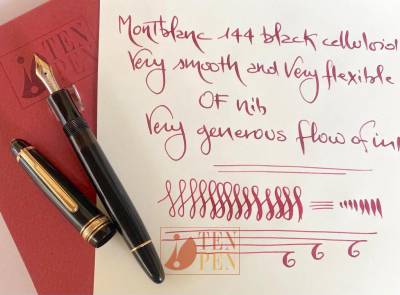 TEN
PEN
Montblanc 144 black celluloid
Very smooth and Very flexible
OF nib
Very generous flow of in
TEN
PEN
6 6 6